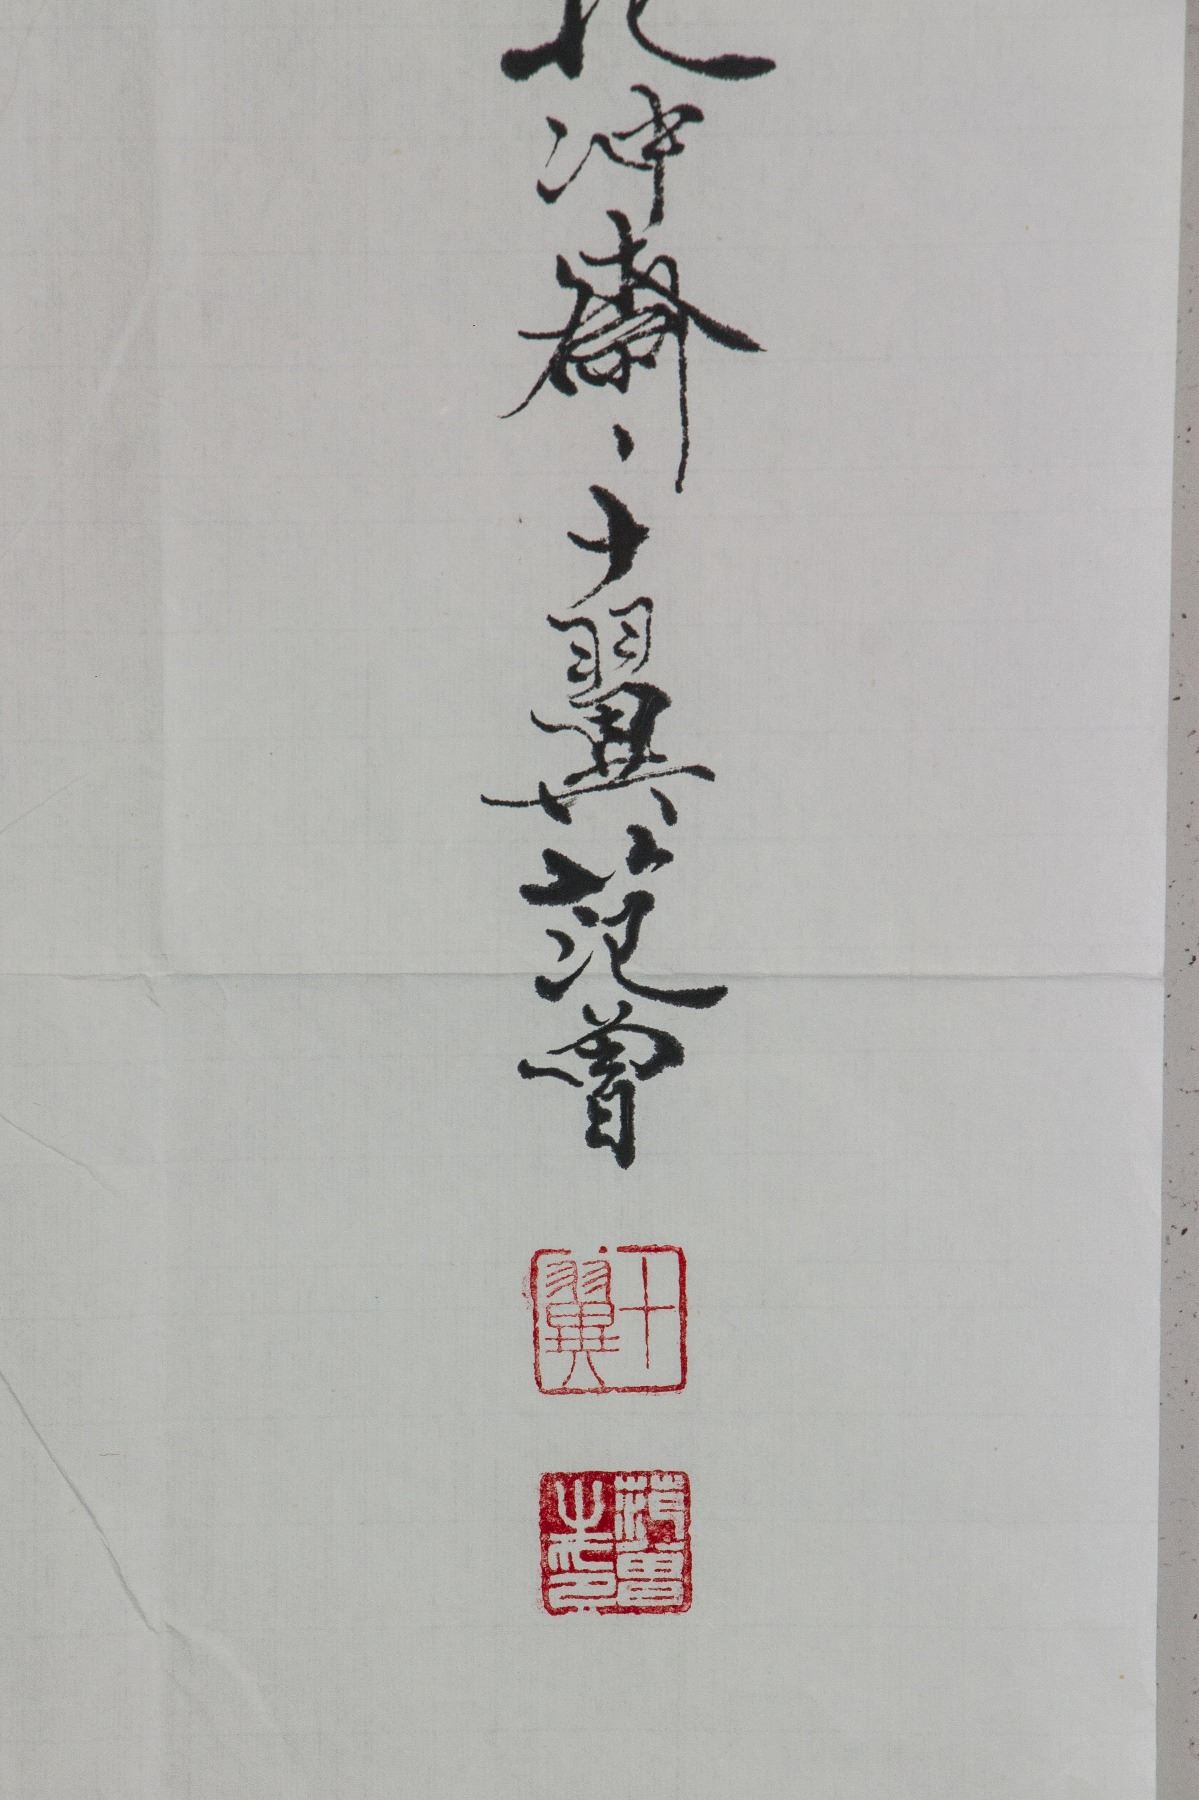 冲齋、十翼范曾
十翼
范曾之印